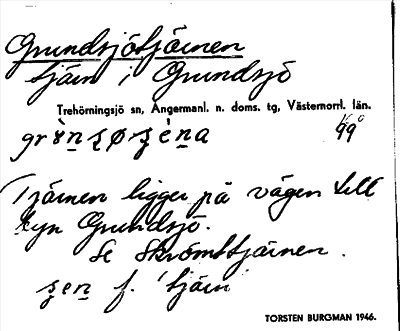 Grundsjötjärnen
tjärn i Grundsjö
Trehörningsjö sn, Ångermanl. n. doms. tg, Västernorrl. län.
99
Tjärnen ligger på vägen till
byn Grundsjö.
Se Skromttjärnen.
f. 'tjärn'
TORSTEN BURGMAN 1946.